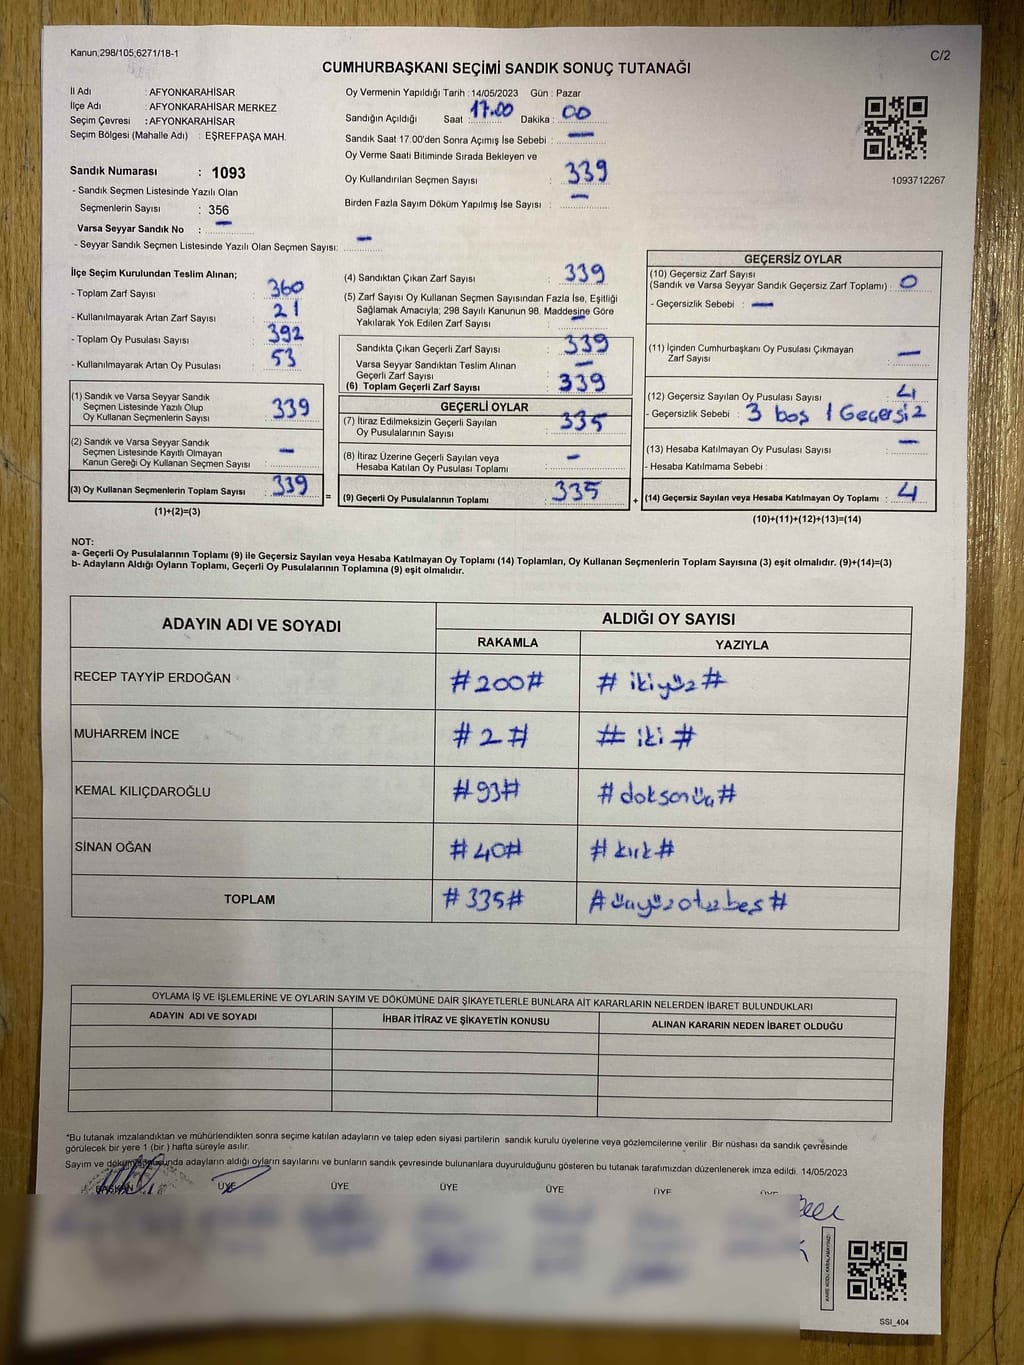 Kanun;298/105,6271/18-1
C/2
CUMHURBAŞKANI SEÇİMİ SANDIK SONUÇ TUTANAĞI
İl Adı : AFYONKARAHİSAR
İlçe Adı : AFYONKARAHİSAR MERKEZ
Seçim Çevresi : AFYONKARAHİSAR
Seçim Bölgesi (Mahalle Adı) : EŞREFPAŞA MAH.
Sandık Numarası : 1093
- Sandık Seçmen Listesinde Yazılı Olan
Seçmenlerin Sayısı : 356
Varsa Seyyar Sandık No : —
- Seyyar Sandık Seçmen Listesinde Yazılı Olan Seçmen Sayısı: —
Oy Vermenin Yapıldığı Tarih : 14/05/2023 Gün : Pazar
Sandığın Açıldığı Saat : 17.00 Dakika : 00
Sandık Saat 17:00'den Sonra Açımış İse Sebebi : —
Oy Verme Saati Bitiminde Sırada Bekleyen ve
Oy Kullandırılan Seçmen Sayısı : 339
Birden Fazla Sayım Döküm Yapılmış İse Sayısı : —
1093712267
İlçe Seçim Kurulundan Teslim Alınan;
- Toplam Zarf Sayısı : 360
- Kullanılmayarak Artan Zarf Sayısı : 21
- Toplam Oy Pusulası Sayısı : 392
- Kullanılmayarak Artan Oy Pusulası : 53
(1) Sandık ve Varsa Seyyar Sandık
Seçmen Listesinde Yazılı Olup
Oy Kullanan Seçmenlerin Sayısı : 339
(2) Sandık ve Varsa Seyyar Sandık
Seçmen Listesinde Kayıtlı Olmayan
Kanun Gereği Oy Kullanan Seçmen Sayısı : —
(3) Oy Kullanan Seçmenlerin Toplam Sayısı : 339
(1)+(2)=(3)
(4) Sandıktan Çıkan Zarf Sayısı : 339
(5) Zarf Sayısı Oy Kullanan Seçmen Sayısından Fazla İse, Eşitliği
Sağlamak Amacıyla; 298 Sayılı Kanunun 98. Maddesine Göre
Yakılarak Yok Edilen Zarf Sayısı : —
Sandıkta Çıkan Geçerli Zarf Sayısı : 339
Varsa Seyyar Sandıktan Teslim Alınan
Geçerli Zarf Sayısı : —
(6) Toplam Geçerli Zarf Sayısı : 339
GEÇERLİ OYLAR
(7) İtiraz Edilmeksizin Geçerli Sayılan
Oy Pusulalarının Sayısı : 335
(8) İtiraz Üzerine Geçerli Sayılan veya
Hesaba Katılan Oy Pusulası Toplamı : —
= (9) Geçerli Oy Pusulalarının Toplamı : 335
GEÇERSİZ OYLAR
(10) Geçersiz Zarf Sayısı
(Sandık ve Varsa Seyyar Sandık Geçersiz Zarf Toplamı) : 0
- Geçersizlik Sebebi : —
(11) İçinden Cumhurbaşkanı Oy Pusulası Çıkmayan
Zarf Sayısı : —
(12) Geçersiz Sayılan Oy Pusulası Sayısı : 4
- Geçersizlik Sebebi : 3 boş 1 Geçersiz
(13) Hesaba Katılmayan Oy Pusulası Sayısı : —
- Hesaba Katılmama Sebebi :
+ (14) Geçersiz Sayılan veya Hesaba Katılmayan Oy Toplamı : 4
(10)+(11)+(12)+(13)=(14)
NOT:
a- Geçerli Oy Pusulalarının Toplamı (9) ile Geçersiz Sayılan veya Hesaba Katılmayan Oy Toplamı (14) Toplamları, Oy Kullanan Seçmenlerin Toplam Sayısına (3) eşit olmalıdır. (9)+(14)=(3)
b- Adayların Aldığı Oyların Toplamı, Geçerli Oy Pusulalarının Toplamına (9) eşit olmalıdır.
ADAYIN ADI VE SOYADI ALDIĞI OY SAYISI
RAKAMLA YAZIYLA
RECEP TAYYİP ERDOĞAN #200# # ikiyüz #
MUHARREM İNCE # 2 # # iki #
KEMAL KILIÇDAROĞLU #93# # doksanüç #
SİNAN OĞAN #40# # kırk #
TOPLAM # 335# # üçyüzotuzbeş #
OYLAMA İŞ VE İŞLEMLERİNE VE OYLARIN SAYIM VE DÖKÜMÜNE DAİR ŞİKAYETLERLE BUNLARA AİT KARARLARIN NELERDEN İBARET BULUNDUKLARI
ADAYIN ADI VE SOYADI İHBAR İTİRAZ VE ŞİKAYETİN KONUSU ALINAN KARARIN NEDEN İBARET OLDUĞU
*Bu tutanak imzalandıktan ve mühürlendikten sonra seçime katılan adayların ve talep eden siyasi partilerin sandık kurulu üyelerine veya gözlemcilerine verilir. Bir nüshası da sandık çevresinde
görülecek bir yere 1 (bir ) hafta süreyle asılır.
Sayım ve dökümü sonunda adayların aldığı oyların sayılarını ve bunların sandık çevresinde bulunanlara duyurulduğunu gösteren bu tutanak tarafımızdan düzenlenerek imza edildi. 14/05/2023
BAŞKAN ÜYE ÜYE ÜYE ÜYE ÜYE ÜYE
SSI_404